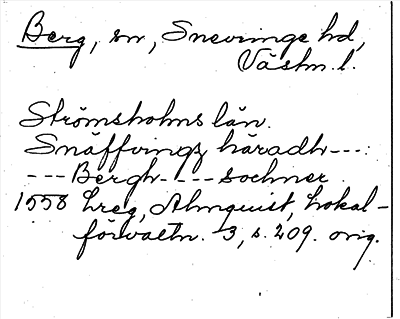 Berg, sn, Snevringe hd,
Västm. l.
Strömsholms län.
Snäffringz häradh ---:
--- Bergh- --- sochner.
1558 Lreg, Almquist, Lokal-
förvaltn. 3, s. 209. orig.